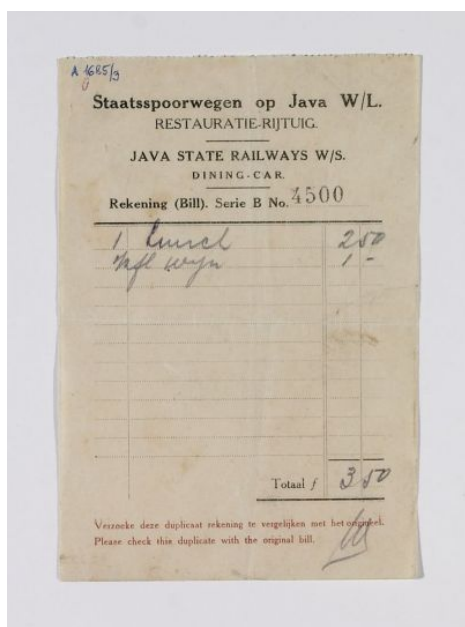 A 1685/3
Staatsspoorwegen op Java W/L.
RESTAURATIE-RIJTUIG.
JAVA STATE RAILWAYS W/S.
DINING-CAR.
Rekening (Bill). Serie B No. 4500
1 Lunch 2 50
wijn 1 -
Totaal ƒ 3 50
Verzoeke deze duplicaat rekening te vergelijken met het origineel.
Please check this duplicate with the original bill.